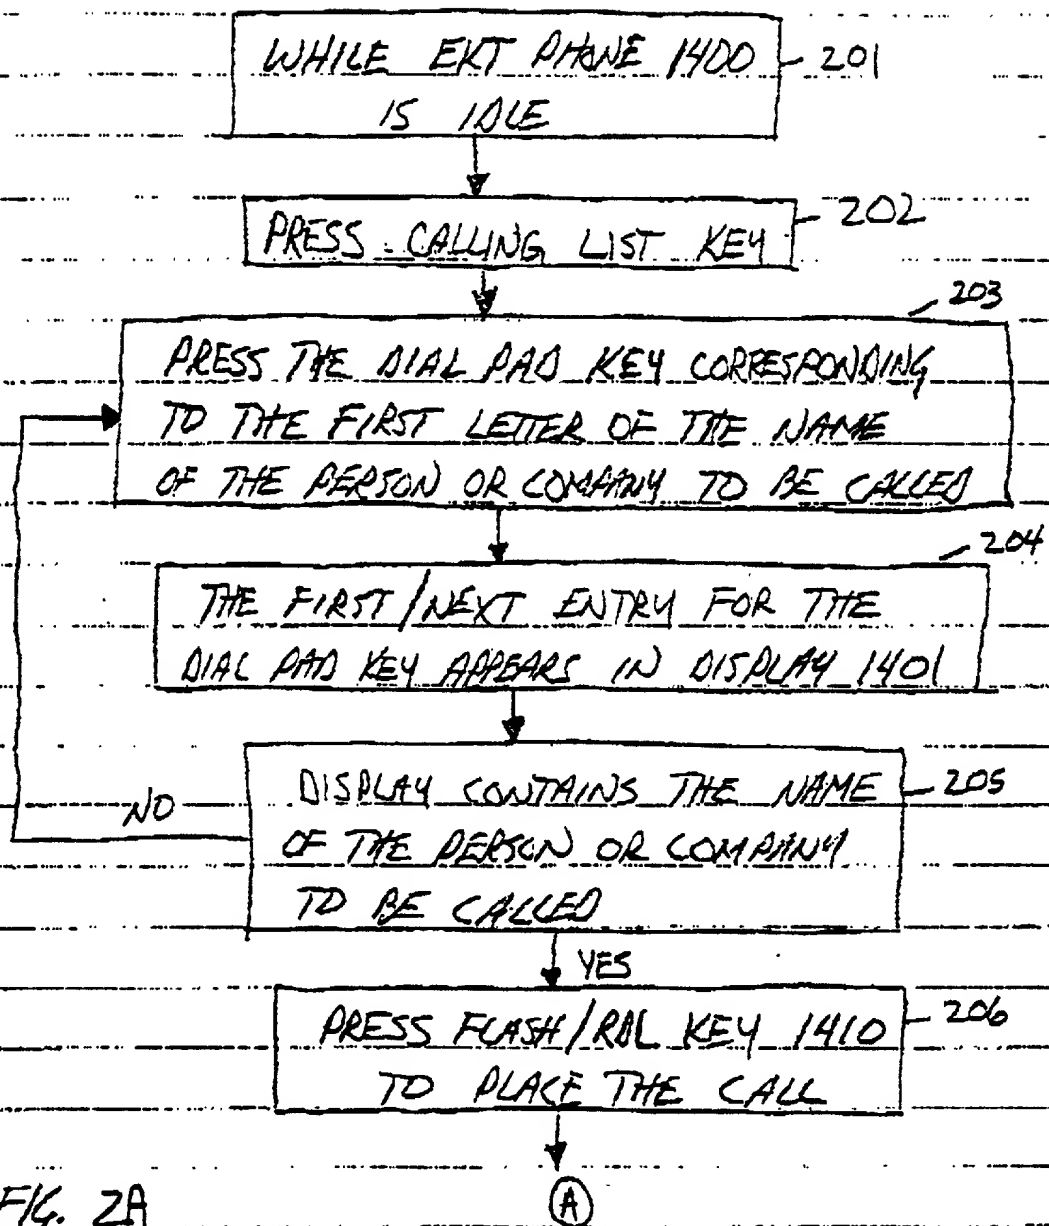 WHILE EKT PHONE 1400 201
IS IDLE
PRESS CALLING LIST KEY 202
203
PRESS THE DIAL PAD KEY CORRESPONDING
TO THE FIRST LETTER OF THE NAME
OF THE PERSON OR COMPANY TO BE CALLED
204
THE FIRST/NEXT ENTRY FOR THE
DIAL PAD KEY APPEARS IN DISPLAY 1401
DISPLAY CONTAINS THE NAME 205
NO
OF THE PERSON OR COMPANY
TO BE CALLED
YES
PRESS FLASH/RDL KEY 1410 206
TO PLACE THE CALL
FIG. 2A
A